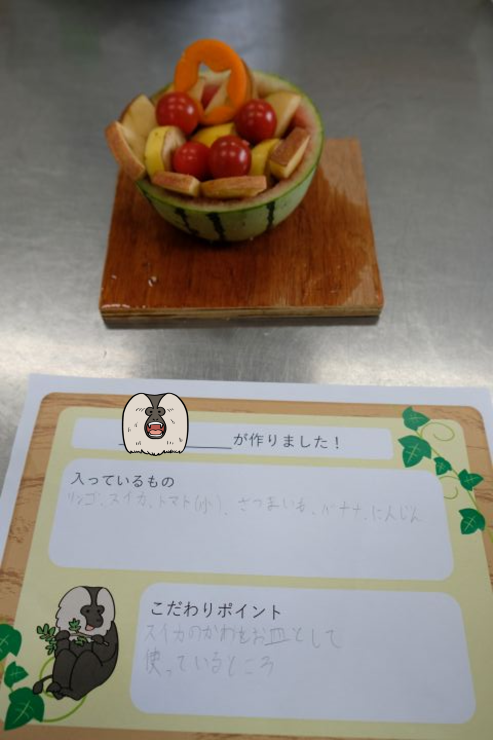 が作りました！
入っているもの
リンゴ、スイカ、トマト(小)、さつまいも、バナナ、にんじん
こだわりポイント
スイカのかわをお皿として
使っているところ